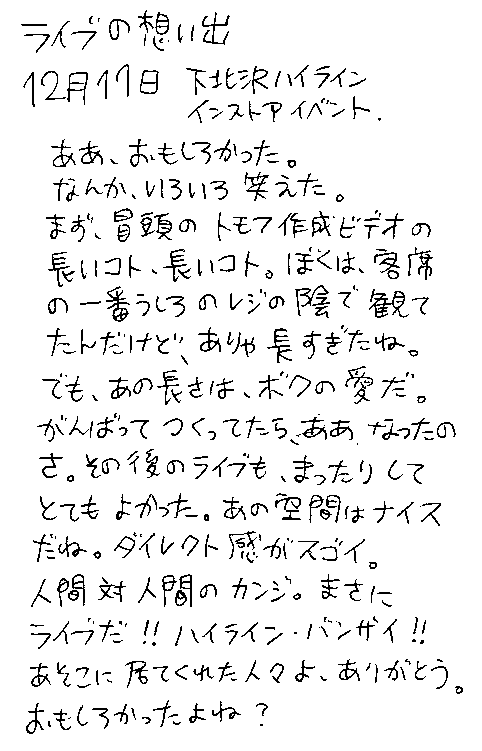 ライブの想い出
12月17日 下北沢ハイライン
インストアイベント.
ああ、おもしろかった。
なんか、いろいろ笑えた。
まず、冒頭のトモフ作成ビデオの
長いコト、長いコト。ぼくは、客席
の一番うしろのレジの陰で観て
たんだけど、ありゃ長すぎたね。
でも、あの長さは、ボクの愛だ。
がんばってつくってたら、ああなったの
さ。その後のライブも、まったりして
とてもよかった。あの空間はナイス
だね。ダイレクト感がスゴイ。
人間対人間のカンジ。まさに
ライブだ!!ハイライン・バンザイ!!
あそこに居てくれた人々よ、ありがとう。
おもしろかったよね?